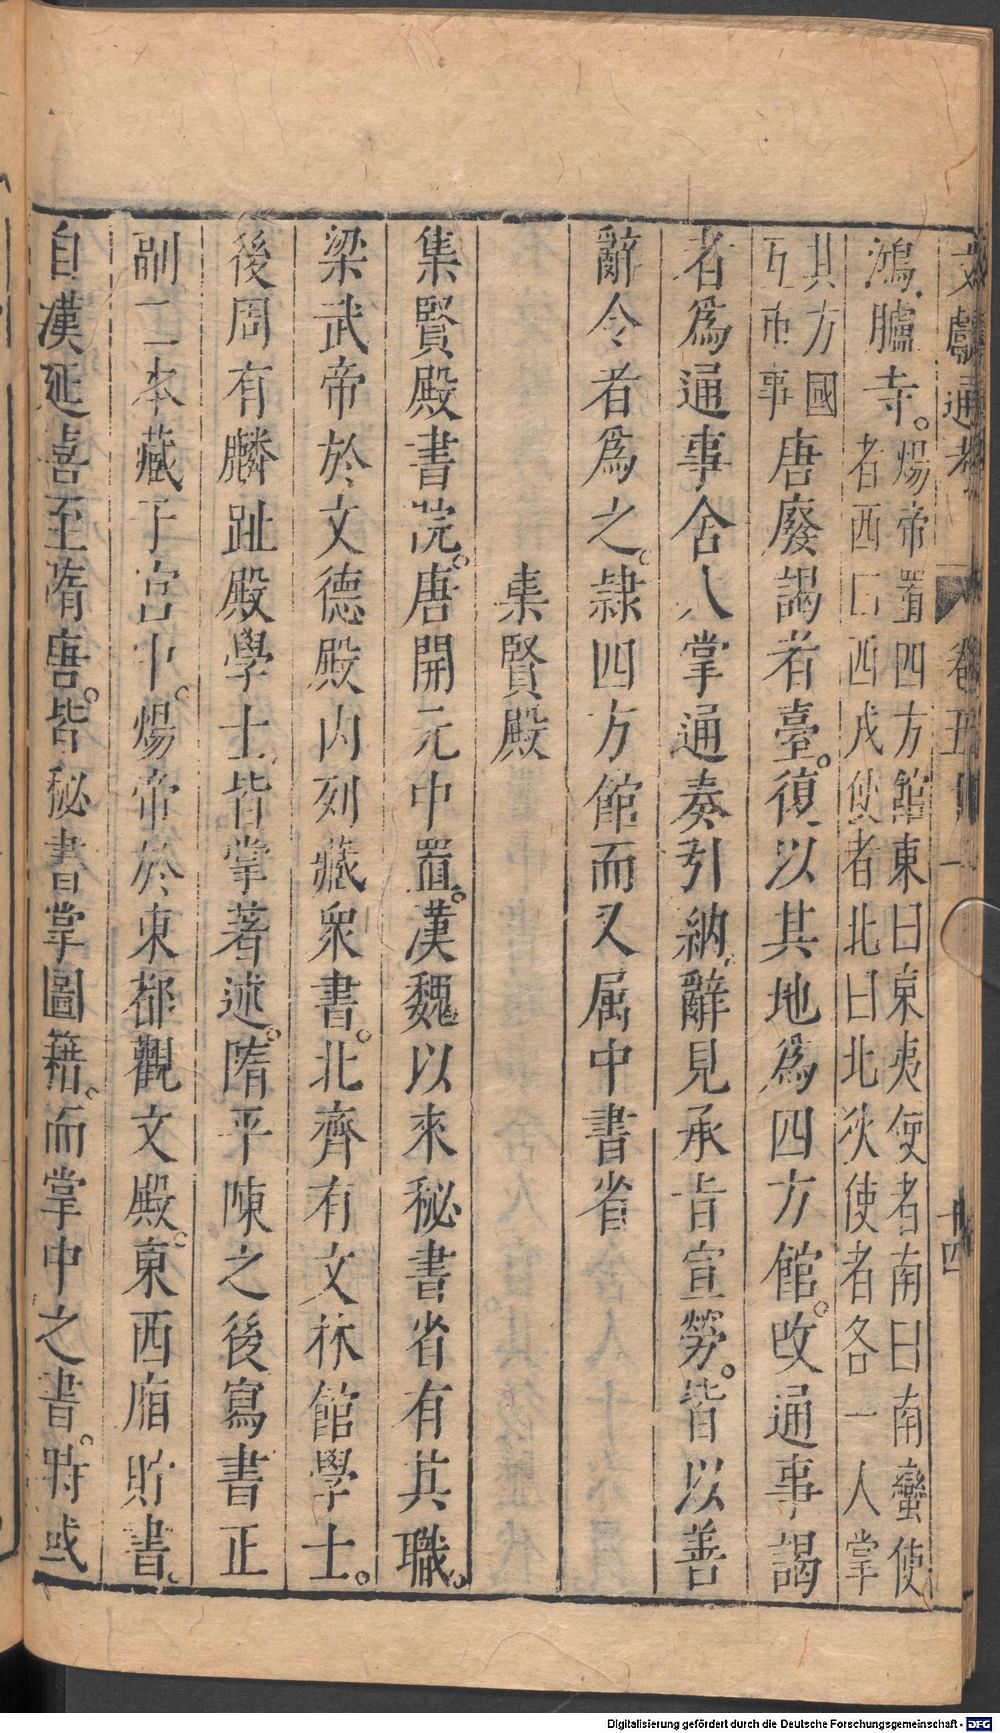 文獻通考 卷五十一 十四
鴻臚寺。煬帝置四方館東曰東夷使者南曰南蠻使
者西曰西戎使者北曰北狄使者各一人掌
其方國
互市事唐廢謁者臺。復以其地爲四方館。改通事謁
者爲通事舍人掌通奏引納辭見承旨宣勞。皆以善
辭令者爲之。隷四方館而又属中書省
集賢殿
集賢殿書院。唐開元中置。漢魏以來秘書省有其職。
梁武帝於文德殿内列藏衆書。北齊有文林館學士。
後周有麟趾殿學士皆掌著述。隋平陳之後寫書正
副二本藏于宫中。煬帝於東都觀文殿。東西廂貯書。
自漢延熹至隋唐。皆秘書掌圖籍。而掌中之書。時或
Digitalisierung gefördert durch die Deutsche Forschungsgemeinschaft - DFG